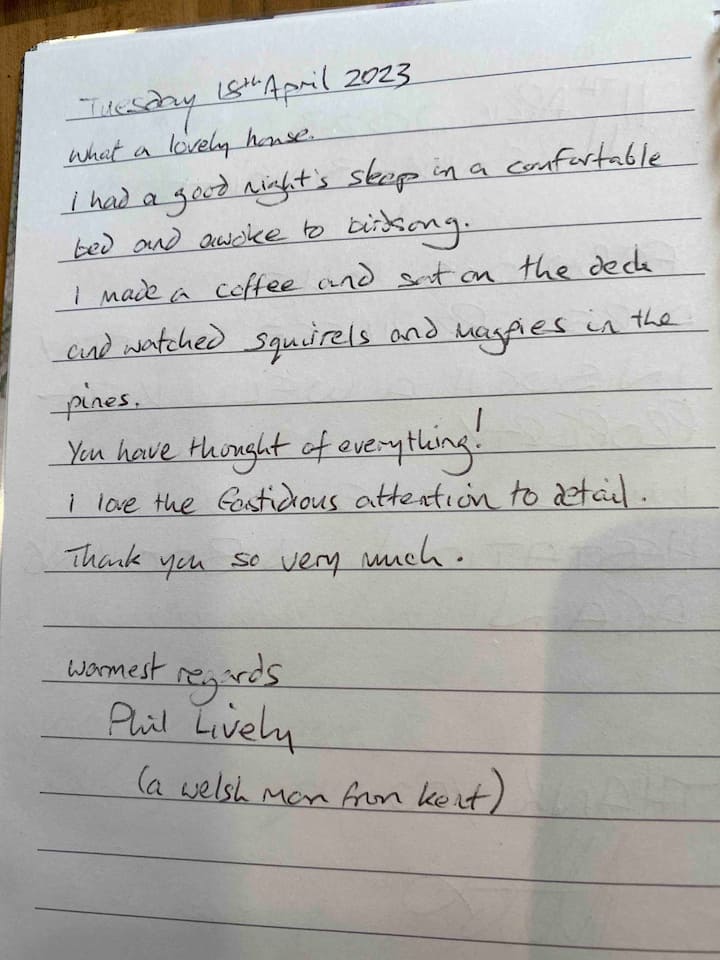 Tuesday 18th April 2023
What a lovely house.
I had a good night's sleep in a comfortable
bed and awoke to birdsong.
I made a coffee and sat on the deck
and watched squirrels and magpies in the
pines.
You have thought of everything!
I love the fastidious attention to detail.
Thank you so very much.
Warmest regards
Phil Lively
(a welsh man from Kent)